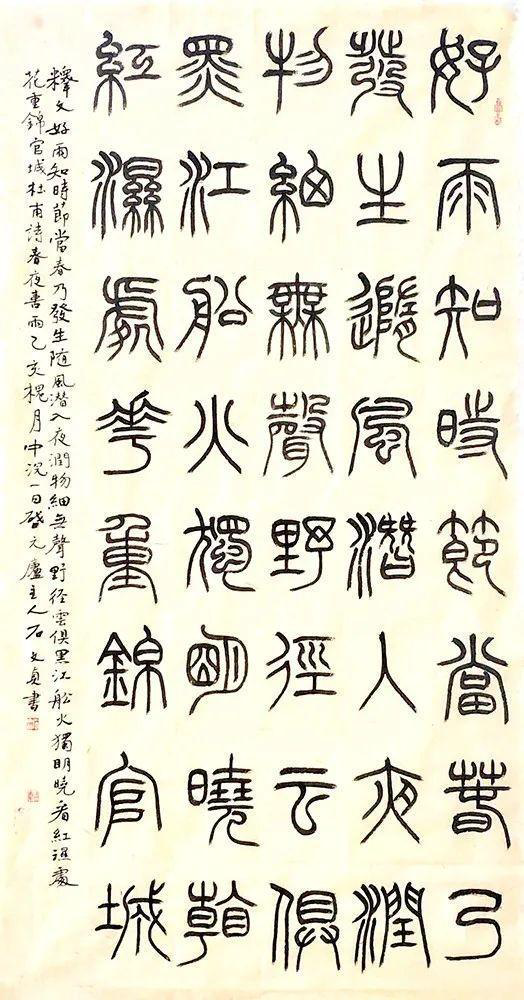 好雨知時節當春乃
發生隨風潛入夜潤
物細無聲野徑云俱
黑江船火獨明曉看
紅濕處花重錦官城
釋文好雨知時節當春乃發生随風潛入夜潤物細無聲野径雲俱黑江船火獨明曉看紅濕處
花重錦官城杜甫詩春夜喜雨乙亥槐月中浣一日啓元廬主人石文貞書